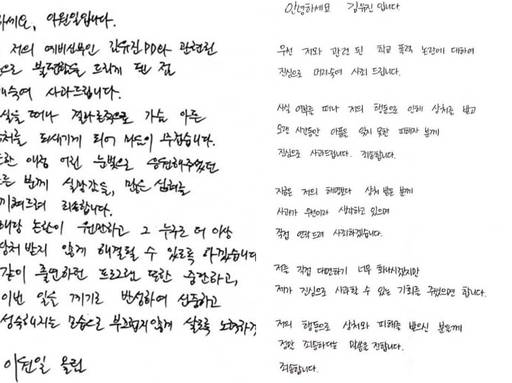 하세요, 이원일입니다.
저의 예비신부인 김유진PD와 관련된
으로 불편함을 드리게 된 점
숙여 사과드립니다.
실을 떠나 결과론적으로 가슴 아픈
처를 되새기게 되어 마음이 무겁습니다.
또한 애정 어린 눈빛으로 응원해주셨던
른 분께 실망감을, 많은 심려를
끼쳐드려 죄송합니다.
해당 논란이 원만하고 그 누구도 더 이상
상처 받지 않게 해결될 수 있도록 하겠습니다
같이 출연하던 프로그램 또한 중단하고,
이번 일을 계기로 반성하여 신중하고
성숙해지는 모습으로 부끄럽지 않게 살도록 노력하겠
이원일 올림
안녕하세요 김유진입니다
우선 저와 관련된 학교 폭력 논란에 대하여
진심으로 머리숙여 사죄 드립니다.
사실 여부를 떠나 저의 행동으로 인해 상처를 받고
오랜 시간동안 아픔을 잊지 못한 피해자 분께
진심으로 사과드립니다. 죄송합니다.
지금은 저의 해명보다 상처 받은 분께
사과가 우선이라 생각하고 있으며
직접 연락드려 사죄하겠습니다.
저를 직접 대면하기 너무 힘드시겠지만
제가 진심으로 사과할 수 있는 기회를 주셨으면 합니다.
저의 행동으로 상처와 피해를 받으신 분들께
정말 죄송하다는 마음을 전합니다.
죄송합니다.